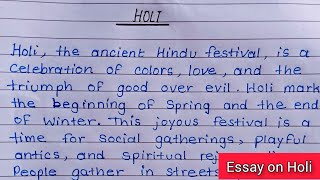 HOLI
Holi, the ancient Hindu festival, is a
celebration of colors, love, and the
triumph of good over evil. Holi mark
the beginning of Spring and the end
of winter. This joyous festival is a
time for social gatherings, playful
antics, and spiritual
People gather in streets
Essay on Holi